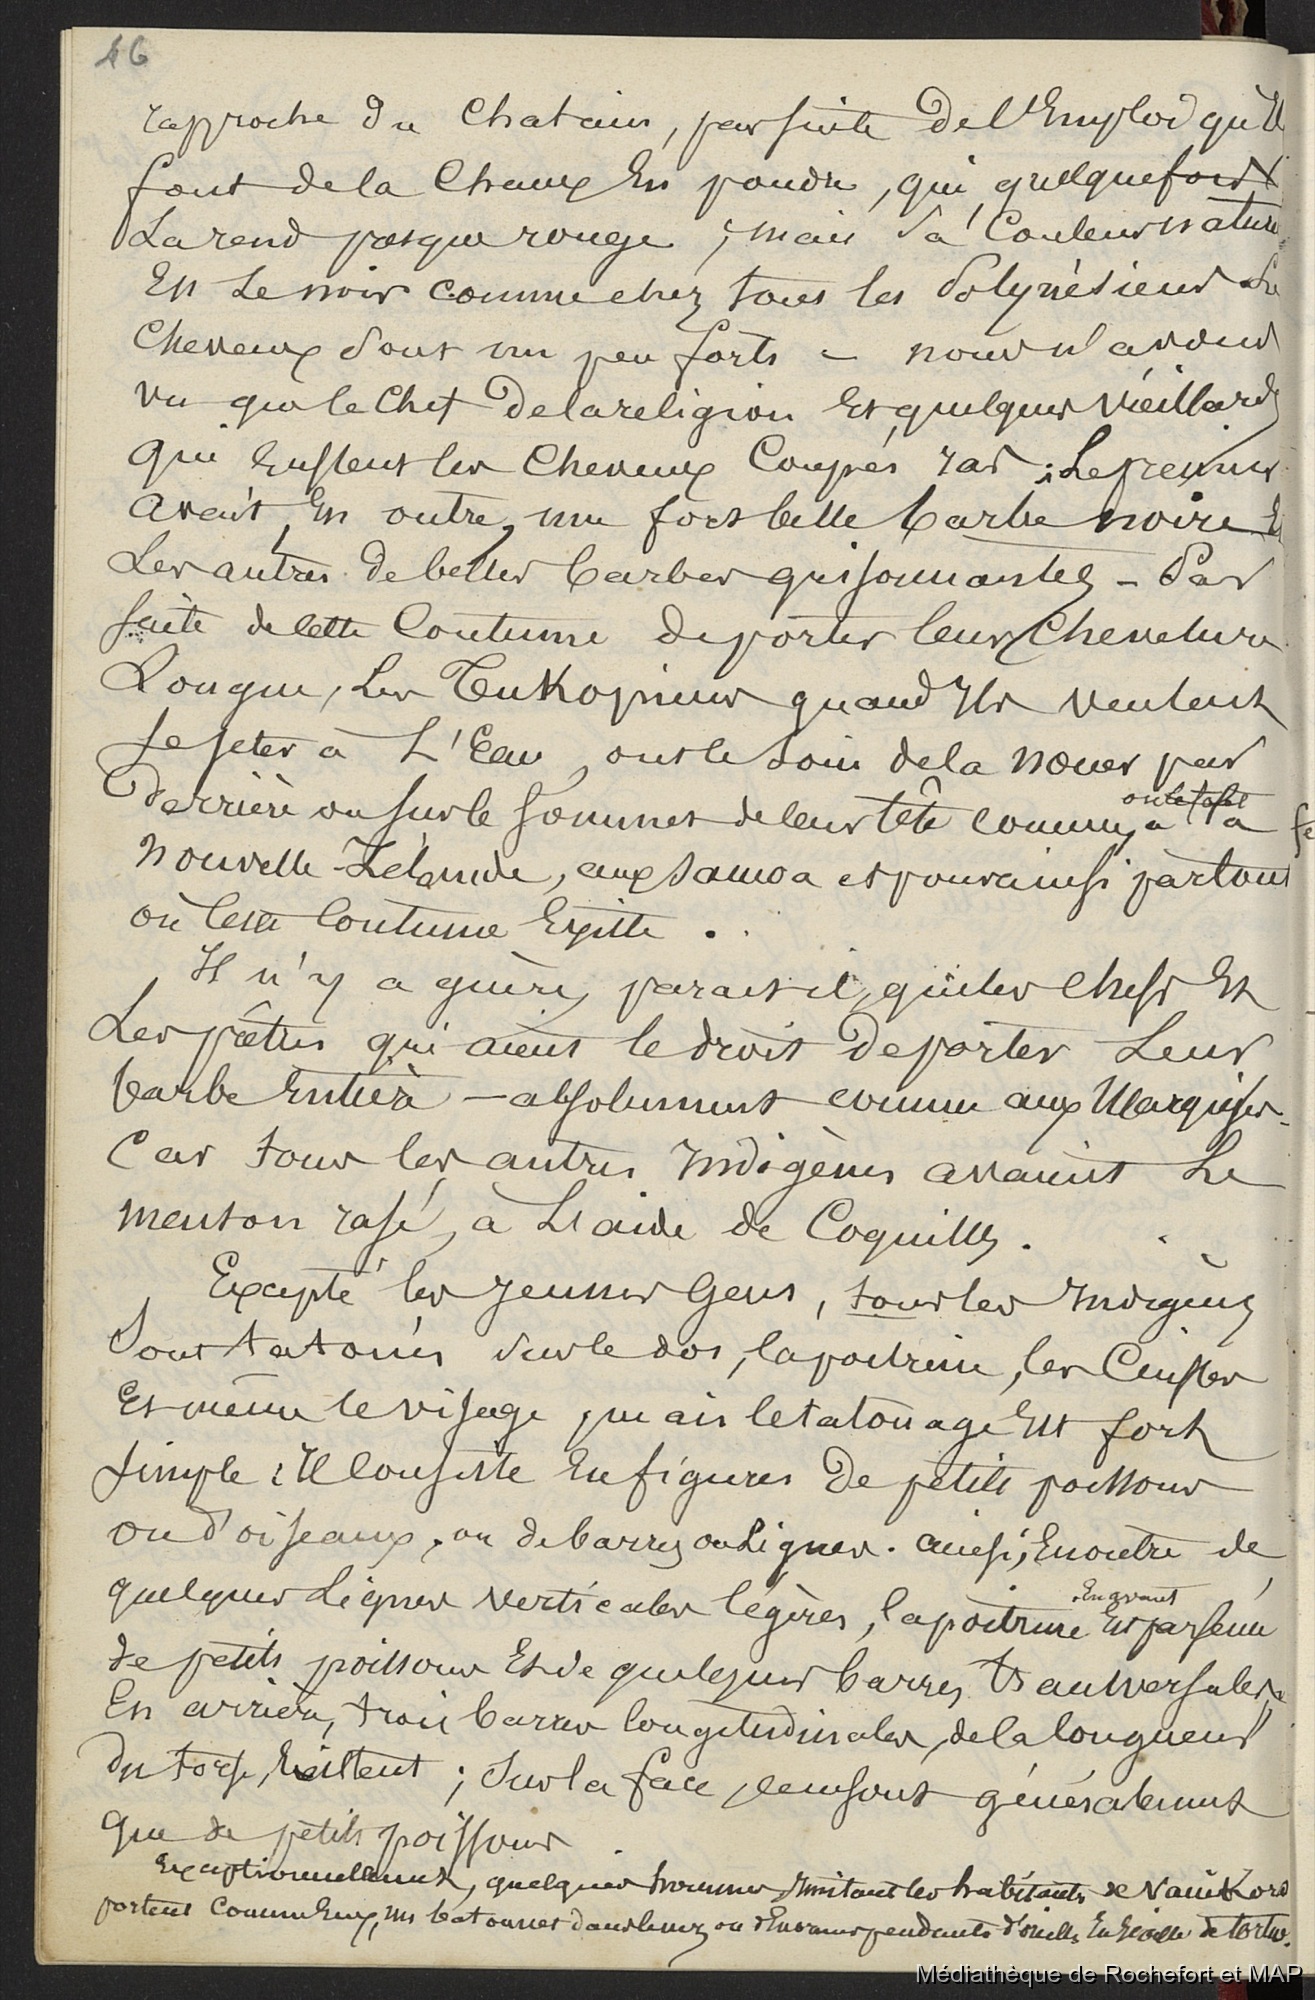 46
rapproche du Chatain, par suite de l'Emploi qu'il
font de la Chaux En poudre, qui quelquefois
La rend presque rouge ; mais sa Couleur nature
Est Le noir comme chez tous les Polynésiens Le
Cheveux sont un peu forts - nous n'avons
vu que le Chef de la religion Et quelques vieillards
qui Eussent les Cheveux Coupés ras ; Le premier
avait, En outre, une fort belle barbe noire E
Les autres de belles barbes grisonnantes - Par
suite de cette Coutume de porter leur Chevelure
Longue, Les Tukopiens quand Ils veulent
se jeter à L'Eau, ont le soin de la nouer par
derrière ou sur le sommet de leur tête comme à la
Nouvelle-Zélande, aux Samoa et pour ainsi partout
où cette Coutume Existe .
Il n'y a guère, parait-il, que les chefs Et
Les prêtres qui aient le droit de porter Leur
barbe Entière - absolument comme aux Marquises -
Car tous les autres Indigènes avaient Le
menton rasé, à L'aide de Coquilles.
Excepté les jeunes Gens, tous les Indigènes
sont tatoués sur le dos, la poitrine, les Cuisses
Et même le visage, mais le tatouage Est fort
simple : Il Consiste En figures de petits poissons
ou d'oiseaux, ou de barres ou Lignes. ainsi, En outre de
quelques Lignes verticales légères, la poitrine En avant Est parsemée
de petits poissons Et de quelques barres transversales,
En arrière, trois barres longitudinales, de la longueur
du torse, Existent ; sur la face, ce ne sont généralement
que de petits poissons
Exceptionnellement, quelques hommes, Imitant les habitants de Vanikoro
portent Comme Eux, un batonnet dans le nez ou d'Enormes pendants d'oreilles En Ecaille de tortue.
Médiathèque de Rochefort et MAP